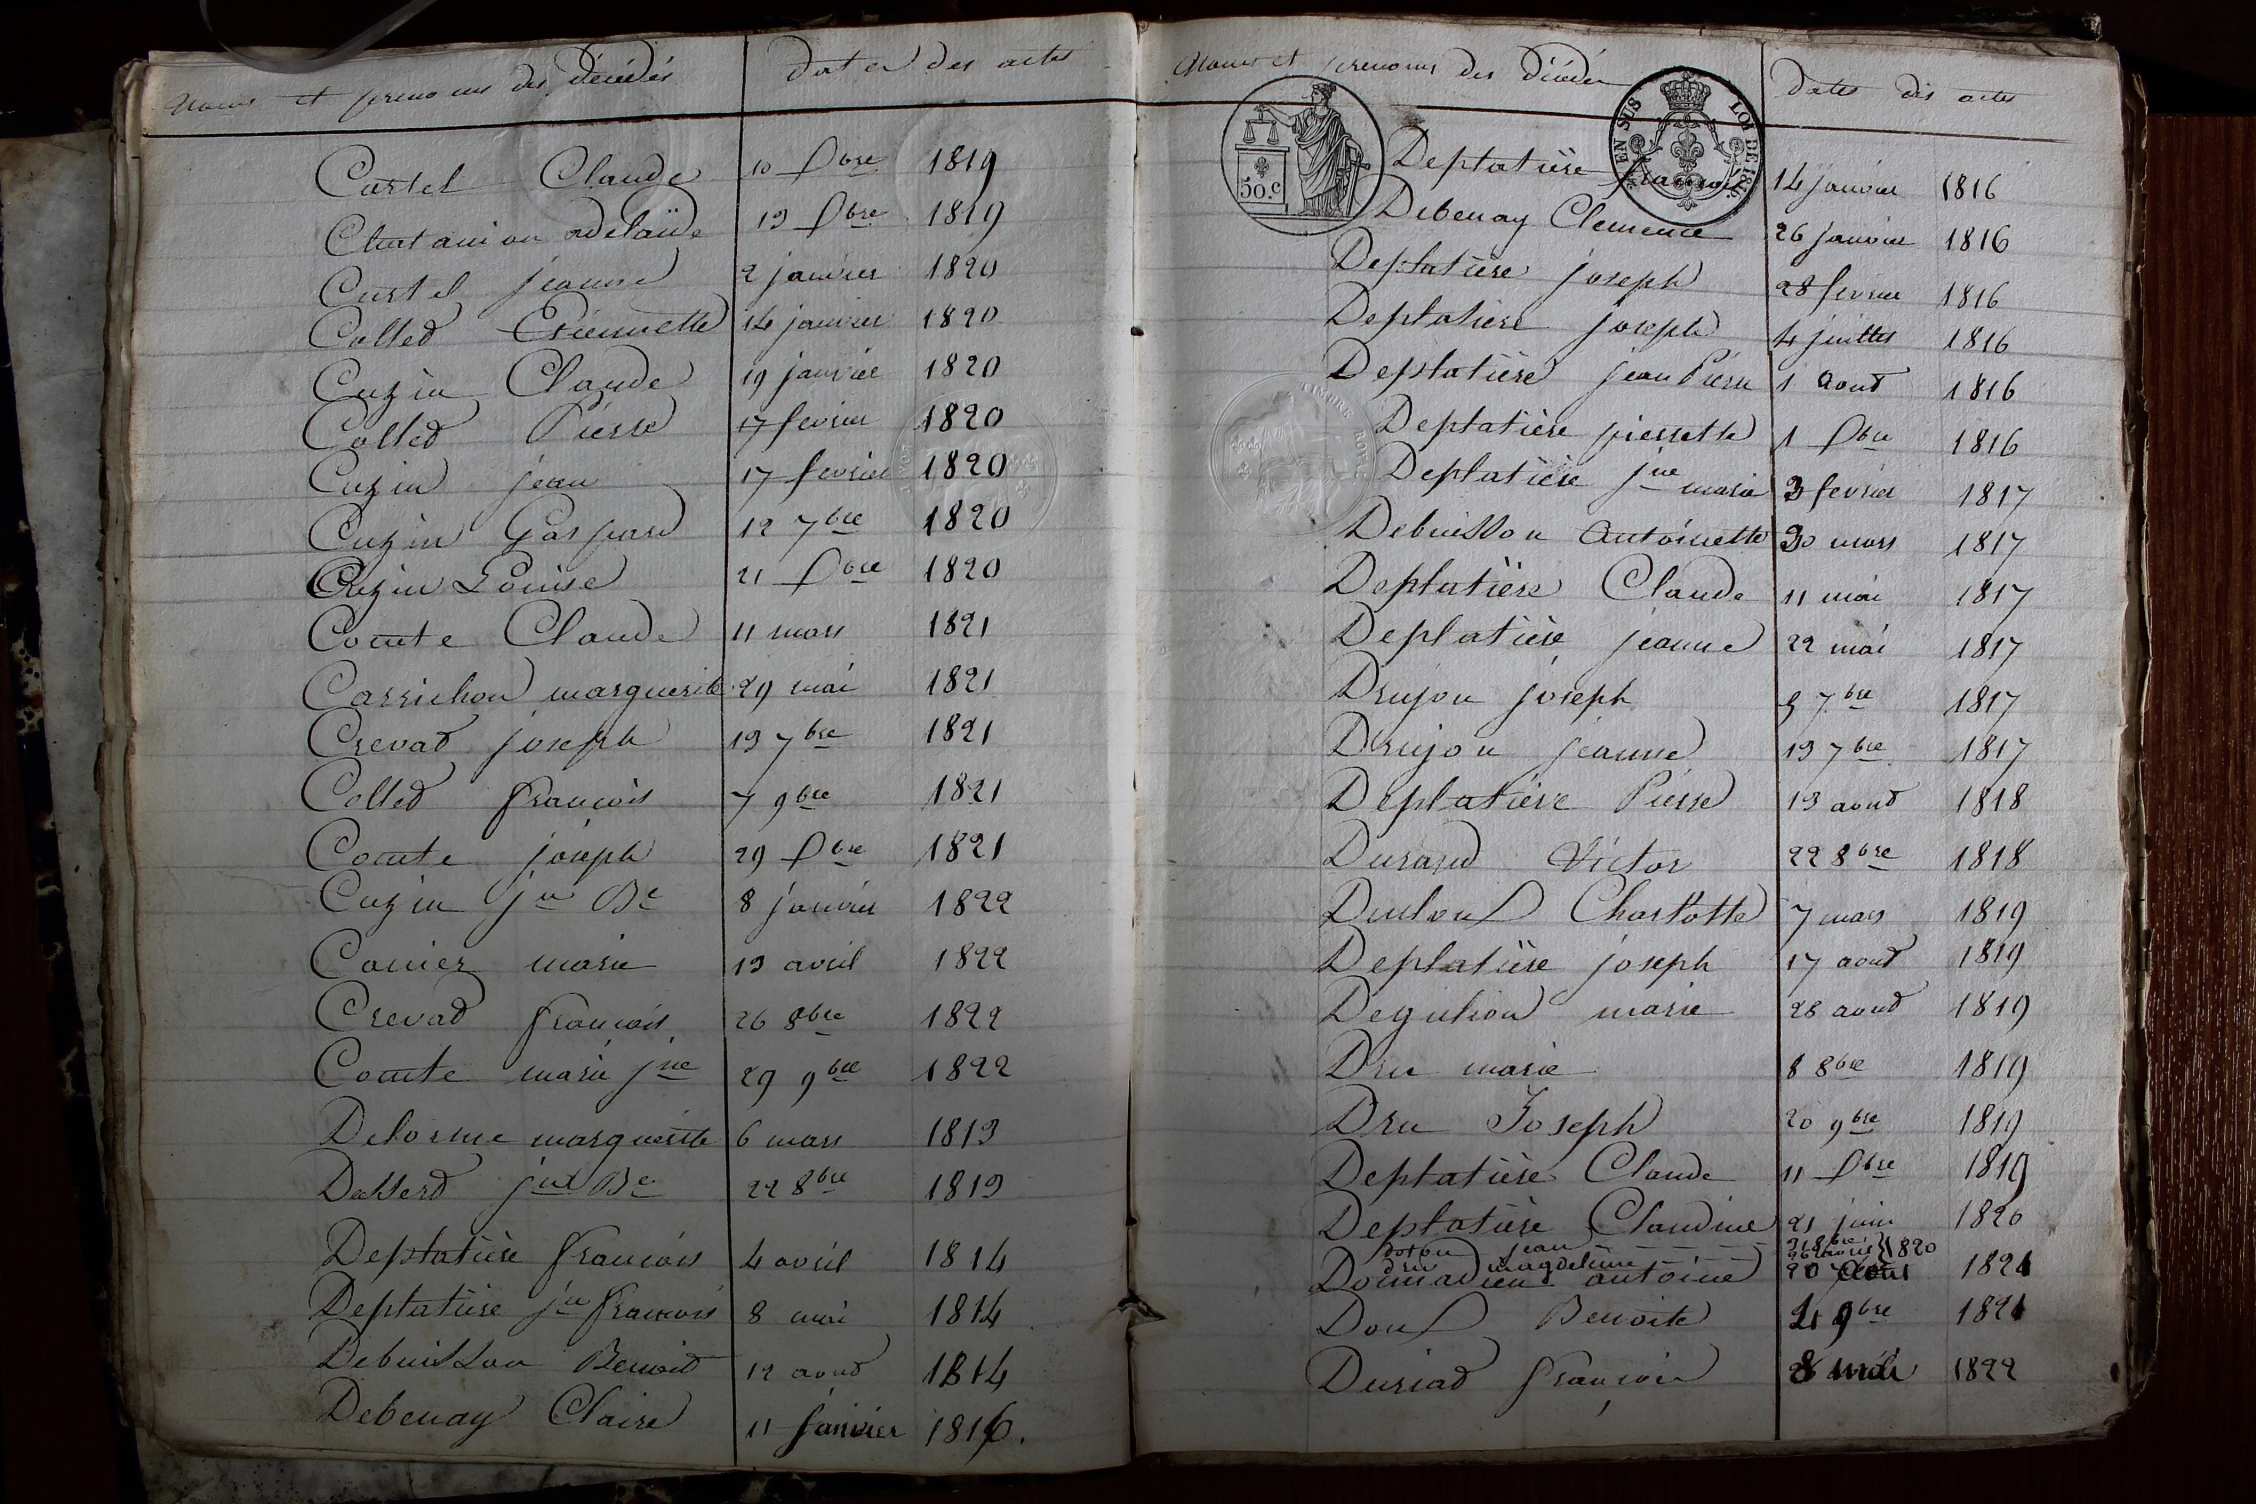 Noms et prenoms des décédés dates des actes
Cartel Claude 10 Xbre 1819
Chatanion adelaïde 13 Xbre 1819
Curtel jeanne 2 janvier 1820
Colled Etiennette 14 janvier 1820
Cuzin Claude 19 janvier 1820
Colled Pierre 17 fevrier 1820
Cuzin jean 17 fevrier 1820
Cuzin Gaspard 12 7bre 1820
Cuzin Louise 21 Xbre 1820
Comte Claude 11 mars 1821
Carrichon marguerite 29 mai 1821
Crevad joseph 13 7bre 1821
Colled françois 7 9bre 1821
Comte joseph 29 Xbre 1821
Cuzin jn Bte 8 janvier 1822
Comier marie 13 avril 1822
Crevad françois 26 8bre 1822
Comte marie jne 29 9bre 1822
Delorme marguerite 6 mars 1813
Dalserd jn Bte 22 8bre 1813
Deplatière françois 4 avril 1814
Deplatière jn françois 8 mai 1814
Debuisson Benoid 12 aoud 1814
Debenay Claire 11 janvier 1816.
Noms et prenoms des décédés dates des actes
50.c
EN SUS LOI DE 1816
Deplatière françois 14 janvier 1816
Debenay Clemence 26 janvier 1816
TIMBRE ROYAL
Deplatière joseph 28 fevrier 1816
Deplatière joseph 4 juillet 1816
Deplatière jean Pierre 1 aoud 1816
Deplatière pierrette 1 Xbre 1816
Deplatière jne marie 3 fevrier 1817
Debuisson Antoinette 30 mars 1817
Deplatière Claude 11 mai 1817
Deplatière jeanne 22 mai 1817
Drujon joseph 5 7bre 1817
Drujon jeanne 13 7bre 1817
Deplatière Pierre 13 aoud 1818
Durand Victor 22 8bre 1818
Charlotte 7 mars 1819
Deplatière joseph 17 aoud 1819
Degulion marie 28 aoud 1819
Dru marie 8 8bre 1819
Dru Joseph 20 9bre 1819
Deplatière Claude 11 Xbre 1819
Deplatière Claudine 21 juin 1820
jean 1820
dru magdeleine
Donnadieu antoine 20 1821
Benoite 9bre 1821
Duriad françois 8 mai 1822